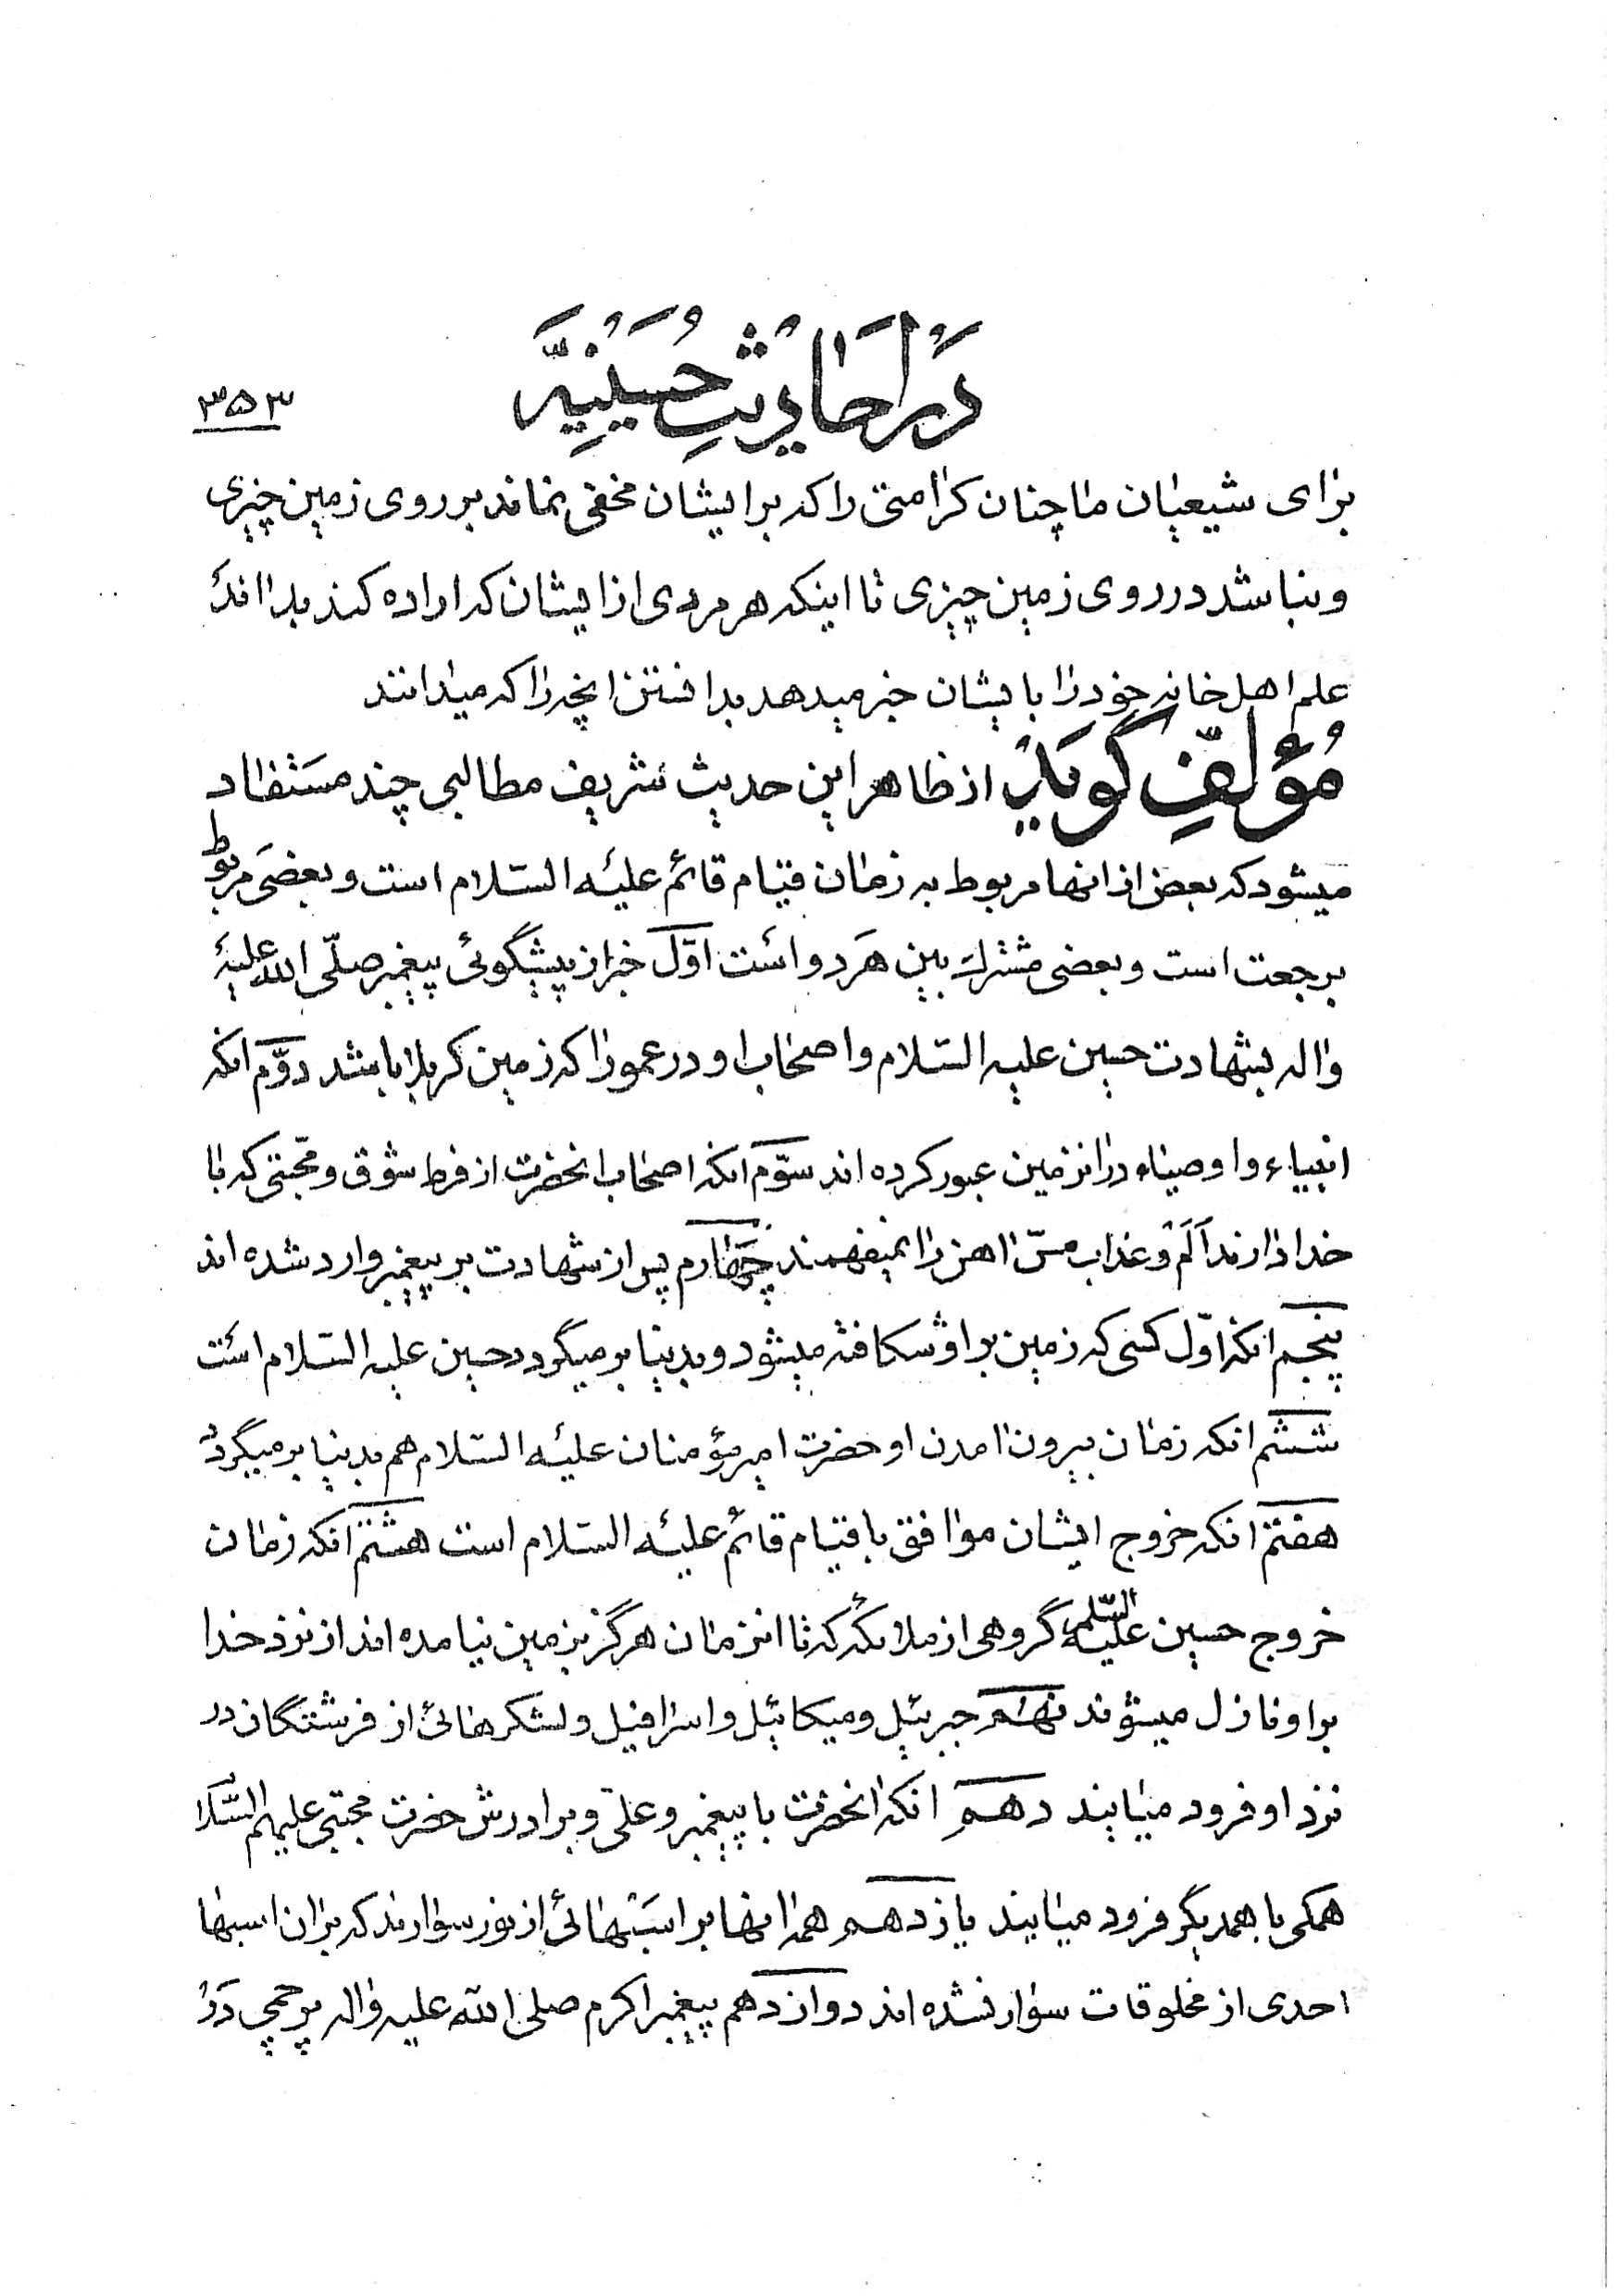 در احادیث حسینیه
۳۵۳
برای شیعیان ما چنان کرامتی را که بر ایشان مخفی نماند بر روی زمین چیزی
و نباشد در روی زمین چیزی تا اینکه هر مردی از ایشان که اراده کند بداند
علم اهل خانه خود را بایشان خبر میدهد بدانستن انچه را که میدانند
مؤلف گوید از ظاهر این حدیث شریف مطالبی چند مستفاد
میشود که بعض از انها مربوط به زمان قیام قائم علیه السّلام است و بعضی مربوط
برجعت است و بعضی مشترک بین هر دو است اوّل خبر از پیشگوئی پیغمبر صلّی الله علیه
واله بشهادت حسین علیه السّلام و اصحاب او در عمورا که زمین کربلا باشد دوّم انکه
انبیاء و اوصیاء در انزمین عبور کرده اند سوّم انکه اصحاب انحضرت از فرط شوق و محبّتی که با
خدا دارند اَلَم و عذاب مسّ اهن را نمیفهمند چهارم پس از شهادت بر پیغمبر وارد شده اند
پنجم انکه اوّل کسی که زمین بر او شکافته میشود و بدنیا بر میگردد حسین علیه السّلام است
ششم انکه زمان بیرون امدن او حضرت امیرمؤمنان علیه السّلام هم بدنیا بر میگردد
هفتم انکه خروج ایشان موافق با قیام قائم علیه السّلام است هشتم انکه زمان
خروج حسین علیه السّلم گروهی از ملائکه که تا انزمان هرگز بزمین نیامده اند از نزد خدا
بر او نازل میشوند نهم جبرئیل و میکائیل و اسرافیل و لشکرهائی از فرشتگان در
نزد او فرود میایند دهم انکه انحضرت با پیغمبر و علی و برادرش حضرت مجتبی علیهم السّلا
همکی با همدیگر فرود میایند یازدهم همه انها بر اسبهائی از نور سوارند که بر ان اسبها
احدی از مخلوقات سوار نشده اند دوازدهم پیغمبر اکرم صلی الله علیه واله پرچمی دَرَد